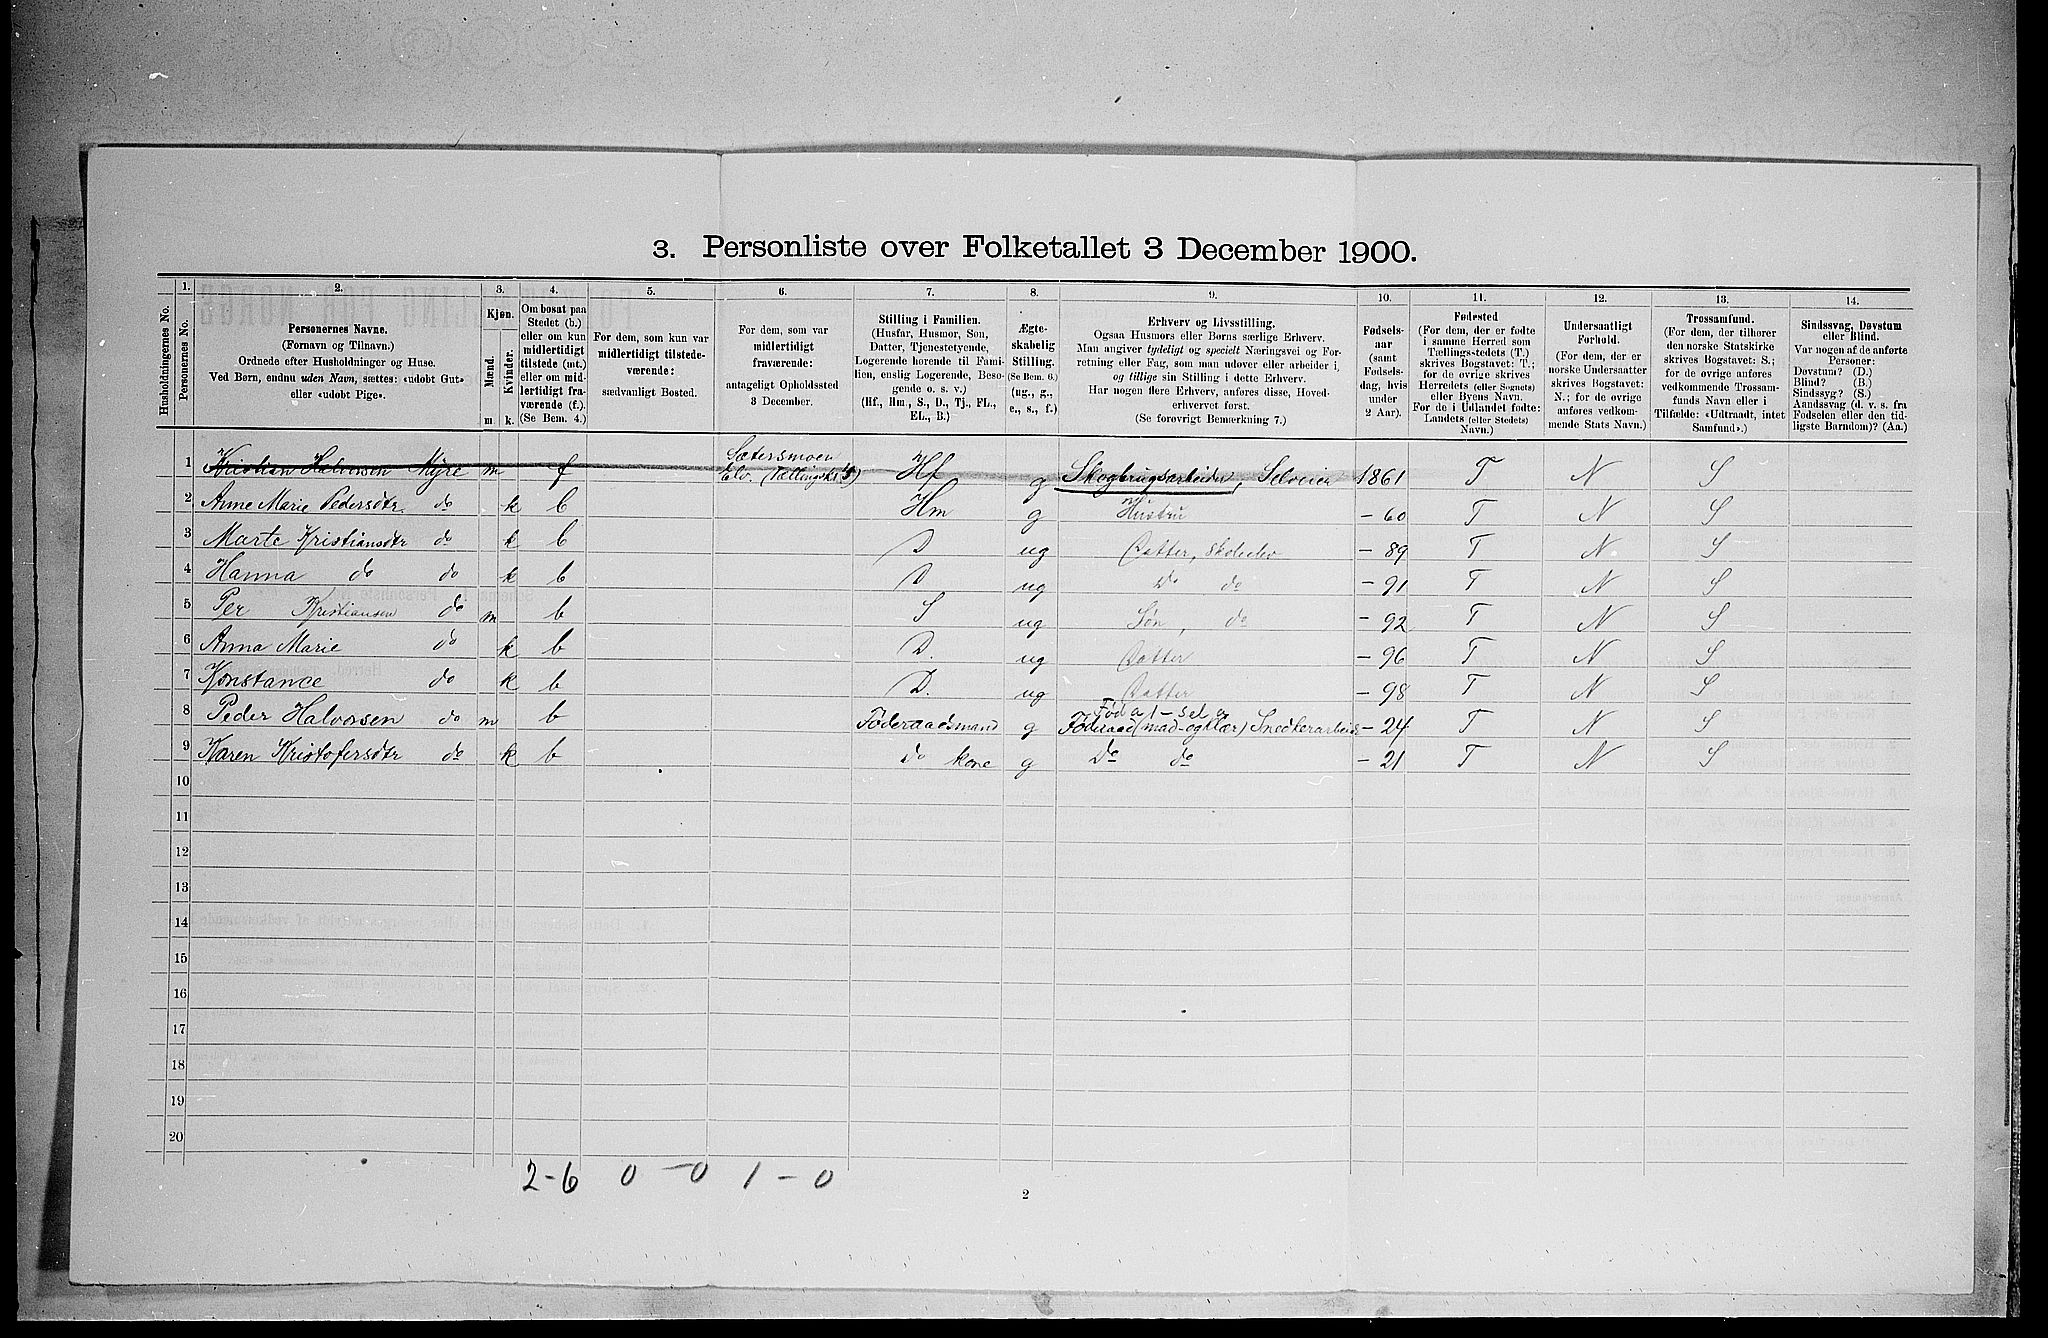 3. Personliste over Folketallet 3 December 1900.
1. 2. 3. 4. 5. 6. 7. 8. 9. 10. 11. 12. 13. 14.
Husholdningernes No.
Personernes No.
Personernes Navne.
(Fornavn og Tilnavn.)
Ordnede efter Husholdninger og Huse.
Ved Børn, endnu uden Navn, sættes: «udøbt Gut»
eller «udøbt Pige».
Kjøn.
Mænd.
Kvinder.
m. k.
Om bosat paa
Stedet (b.)
eller om kun
midlertidigt
tilstede (mt.)
eller om mid-
lertidigt fra-
værende (f.).
(Se Bem. 4.)
For dem, som kun var
midlertidigt tilstede-
værende:
sædvanligt Bosted.
For dem, som var
midlertidigt
fraværende:
antageligt Opholdssted
3 December.
Stilling i Familien.
(Husfar, Husmor, Søn,
Datter, Tjenestetyende,
Logerende hørende til Fami-
lien, enslig Logerende, Besø-
gende o. s. v.)
(Hf., Hm., S., D., Tj., FL.,
EL., B.)
Ægte-
skabelig
Stilling.
(Se Bem. 6.)
(ug., g.,
e., s., f.)
Erhverv og Livsstilling.
Ogsaa Husmors eller Børns særlige Erhverv.
Man angiver tydeligt og specielt Næringsvei og For-
retning eller Fag, som man udøver eller arbeider i,
og tillige sin Stilling i dette Erhverv.
Har nogen flere Erhverv, anføres disse, Hoved-
erhvervet først.
(Se forøvrigt Bemærkning 7.)
Fødsels-
aar
(samt
Fødsels-
dag, hvis
under
2 Aar).
Fødested
(For dem, der er fødte
i samme Herred som
Tællingsstedets (T.)
skrives Bogstavet: T.;
for de øvrige skrives
Herredets (eller Sognets)
eller Byens Navn.
For de i Udlandet fødte:
Landets (eller Stedets)
Navn.)
Undersaatligt
Forhold.
(For dem, der er
norske Undersaatter
skrives Bogstavet:
N.; for de øvrige
anføres vedkom-
mende Stats Navn.)
Trossamfund.
(For dem, der tilhører
den norske Statskirke
skrives Bogstavet: S.;
for de øvrige anføres
vedkommende Trossam-
funds Navn eller i
Tilfælde: «Udtraadt, intet
Samfund».)
Sindssvag, Døvstum
eller Blind.
Var nogen af de anførte
Personer:
Døvstum? (D.)
Blind? (B.)
Sindssyg? (S.)
Aandssvag (d. v. s. fra
Fødselen eller den tid-
ligste Barndom)? (Aa.)
1 Kristian Halvorsen Myre m f Sætersmoen Elv. Hf g Skogbrugsarbeider, Selveier 1861 T N S
2 Anne Marie Pedersdtr. do k b Hm g Hustru - 60 T N S
3 Marte Kristiansdtr do k b D ug Datter, skoleelev - 89 T N S
4 Hanna do do k b D ug do do - 91 T N S
5 Per Kristiansen do m b S ug Søn, do - 92 T N S
6 Anna Marie do k b D. ug Datter - 96 T N S
7 Konstance do k b D. ug Datter - 98 T N S
8 Peder Halvorsen do m b Føderaadsmand g Føderaad (mad-og klær) Snedkerarbeid - 24 T N S
9 Karen Kristofersdtr do k b do kone g Do do - 21 T N S
10
11
12
13
14
15
16
17
18
19
20
2-6 0-0 1-0
2